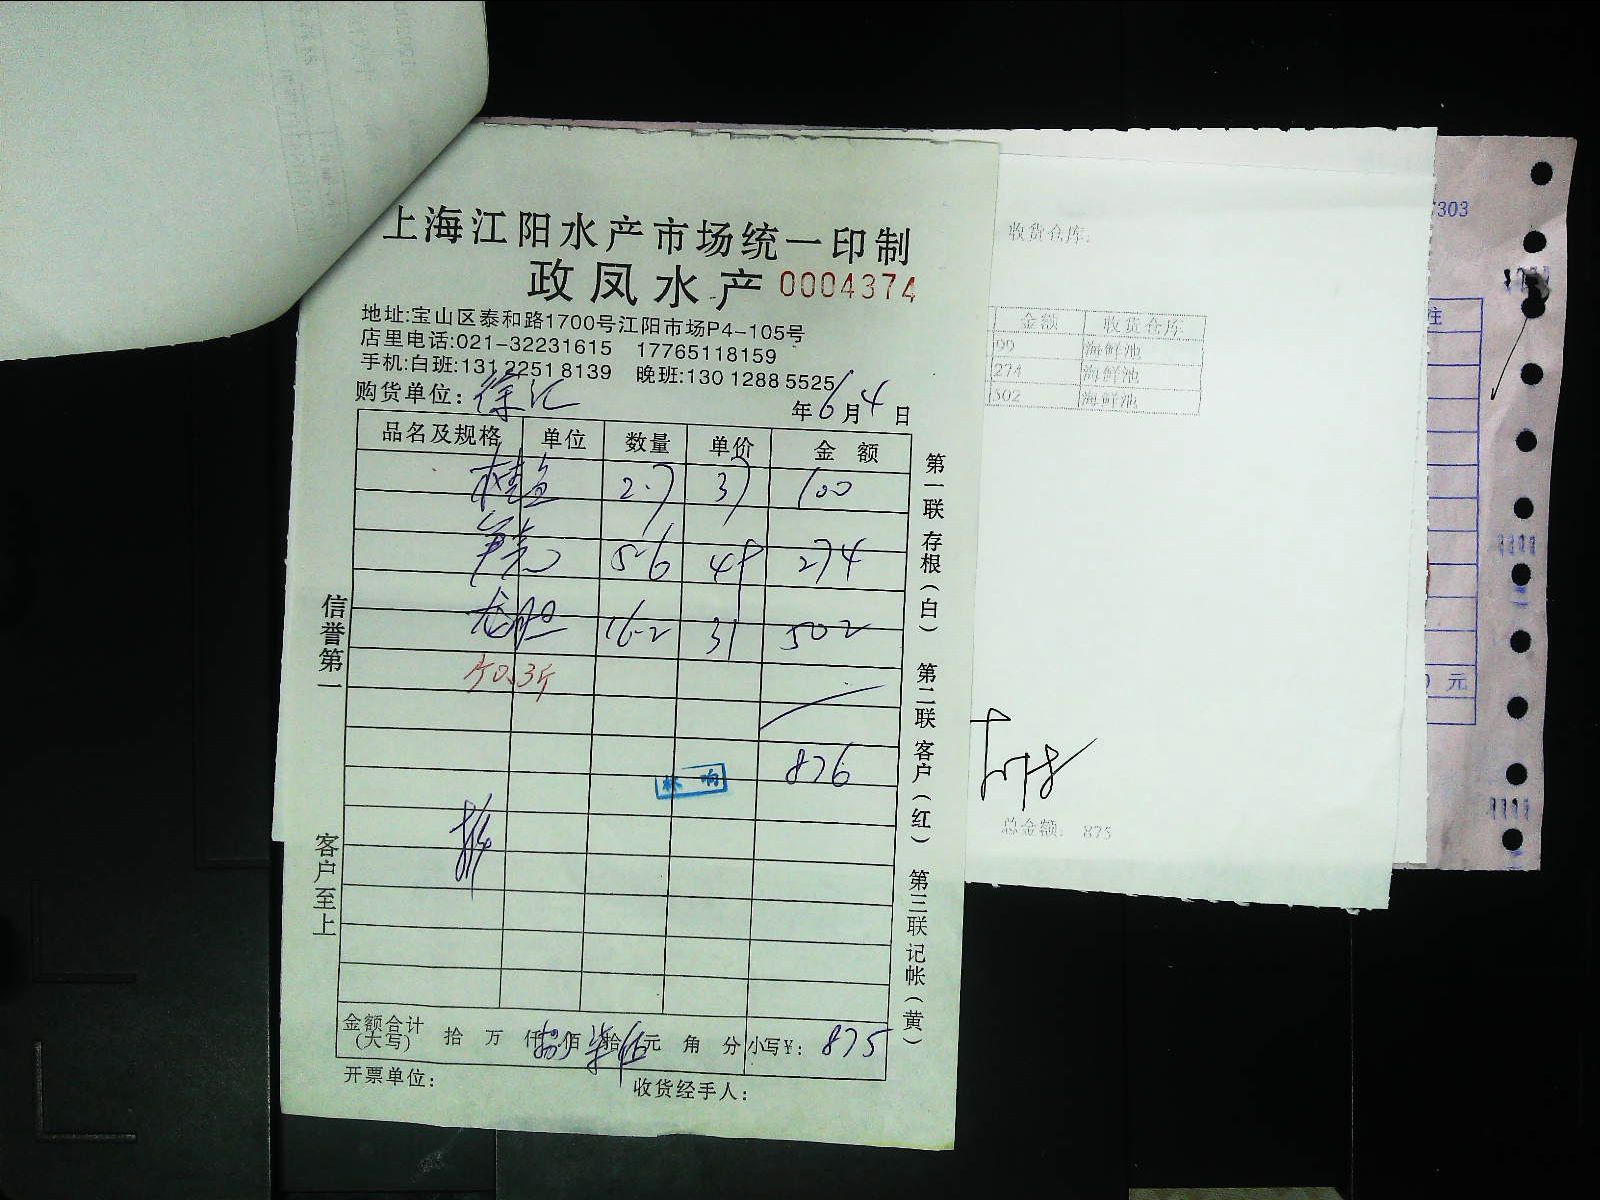 上海江阳水产市场统一印制
政凤水产 0004374
地址:宝山区泰和路1700号江阳市场P4-105号
店里电话:021-32231615 17765118159
手机:白班:131 2251 8139 晚班:130 1288 5525
购货单位: 徐汇 年6月4日
品名及规格 单位 数量 单价 金额
桂鱼 2.7 37 100
5.6 49 274
龙胆 16.2 31 502
0.3斤
876
林 响
金额合计(大写) 拾 万 仟 捌佰 柒拾 伍元 角 分 小写¥: 875
开票单位: 收货经手人:
信誉第一 客户至上
第一联 存根(白) 第二联 客户(红) 第三联 记帐(黄)
收货仓库:
金额 收货仓库
99 海鲜池
274 海鲜池
502 海鲜池
总金额: 875
303
注
元